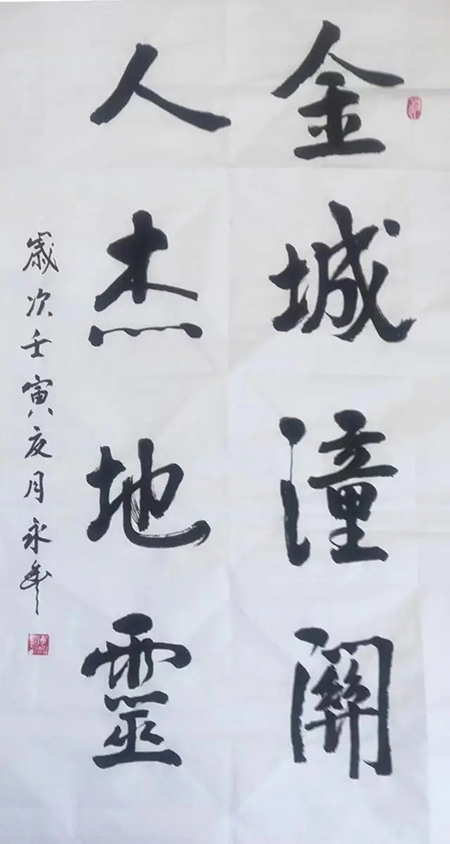 金城潼關
人杰地靈
歲次壬寅亥月永年